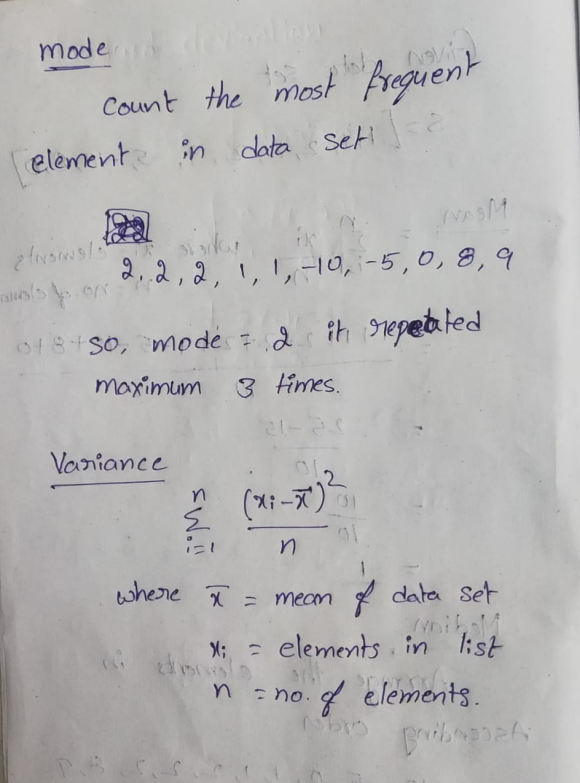 mode
Count the most frequent
element in data set
2, 2, 2, 1, 1, -10, -5, 0, 8, 9
so, mode = 2 it repeated
maximum 3 times.
Variance
n
Σ (xi - x̄)²
i=1 n
where x̄ = mean of data set
xi = elements in list
n = no. of elements.